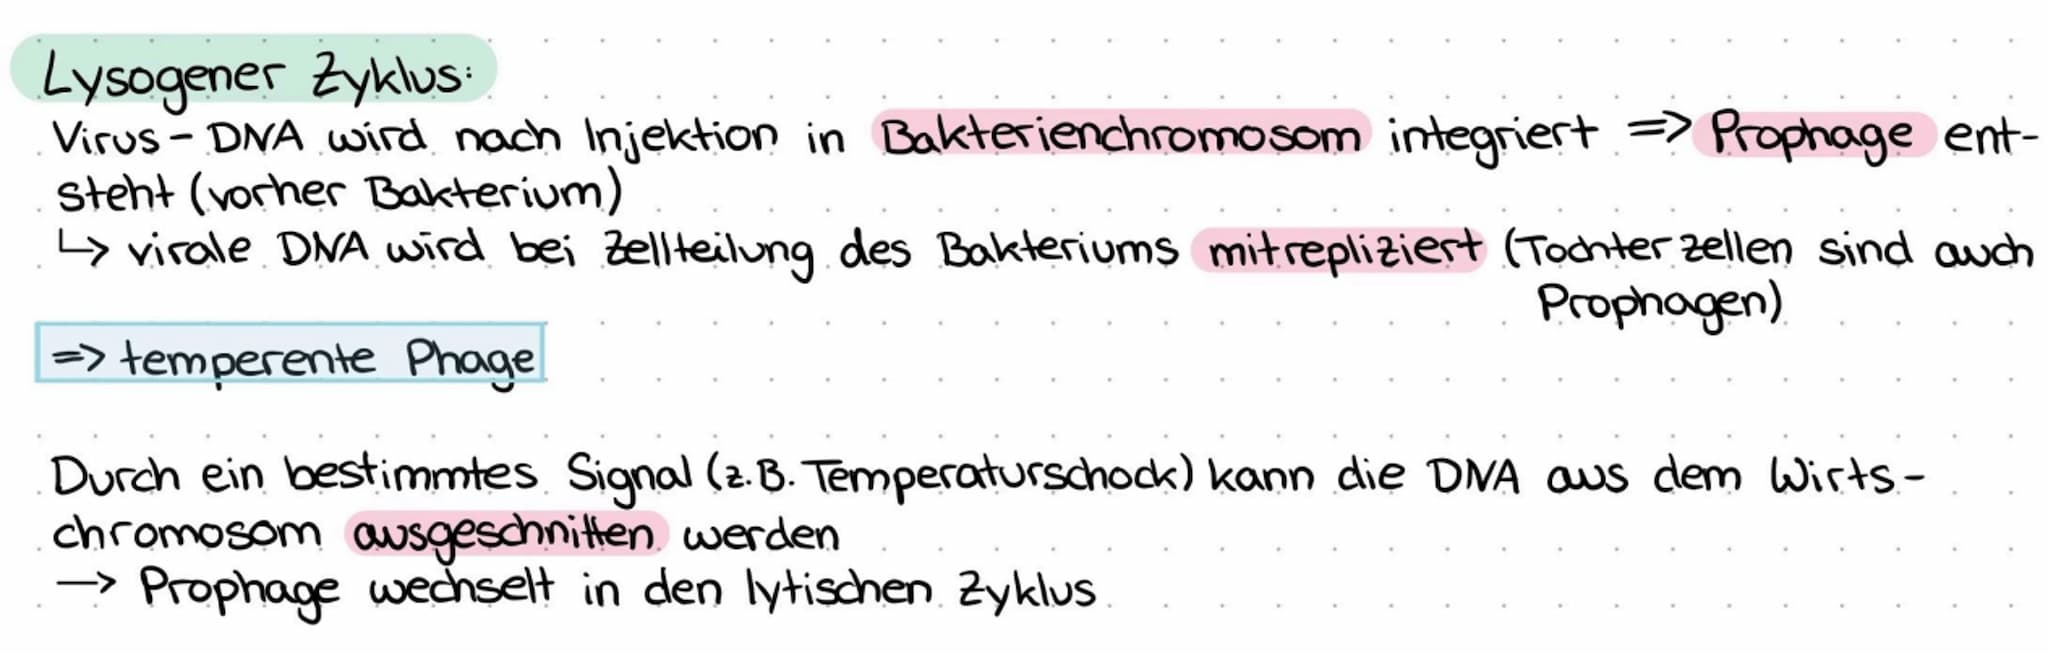 Lysogener Zyklus:
Virus-DNA wird nach Injektion in Bakterienchromosom integriert => Prophage ent-
steht (vorher Bakterium)
↳ virale DNA wird bei Zellteilung des Bakteriums mitrepliziert (Tochterzellen sind auch
Prophagen)
=> temperente Phage
Durch ein bestimmtes Signal (z.B. Temperaturschock) kann die DNA aus dem Wirts-
chromosom ausgeschnitten werden
→ Prophage wechselt in den lytischen Zyklus